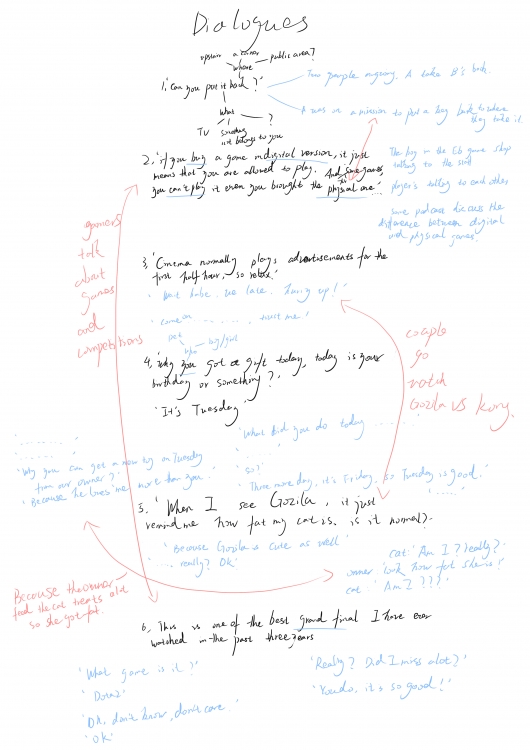 Dialogues
upstair a corner
where
public area?
1, 'Can you put it back?'
Two people arguing. A take B's book.
A was on a mission to put a bug
they take it
what
TV something
isn't belongs to you
?
2, 'if you buy a game on digital version, it just
means that you are allowed to play. And some games,
you can't play it even you brought the physical one.'
The boy in the Eb game shop
talking to the staff
players talking to each other
Some podcast discuss the
difference between digital
and physical games.
gamers
talk
about
games
and
competitions
3, 'Cinema normally plays advertisements for the
first half hour, so relax.'
'But babe. We late. hurry up!'
'come on ......, trust me!'
pet
boy/girl
4, 'why you got a gift today, today is your
birthday or something?'
'It's Tuesday'
couple
go
watch
Gozila VS Kong.
'What did you do today ......
......'
'So?'
'Three more day, it's Friday. so Tuesday is good.'
'......'
'......
......'
'Why you can get a new toy on Tuesday
from our owner?'
'Because he loves me more than you.'
5. 'When I see Gozila, it just
remind me how fat my cat is. is it normal?'
'Because Gozila is cute as well'
'... really? Ok'
cat: 'Am I? really?'
owner 'look how fat she is!'
cat: 'Am I ???'
Because the owner
feed the cat treats a lot
so she got fat.
6, This is one of the best grand final I have ever
watched in the past three years
'What game is it?'
'Dota2'
'Ok, don't know, don't care.'
'Ok'
'Really? Did I miss alot?'
'You do, it is so good!'